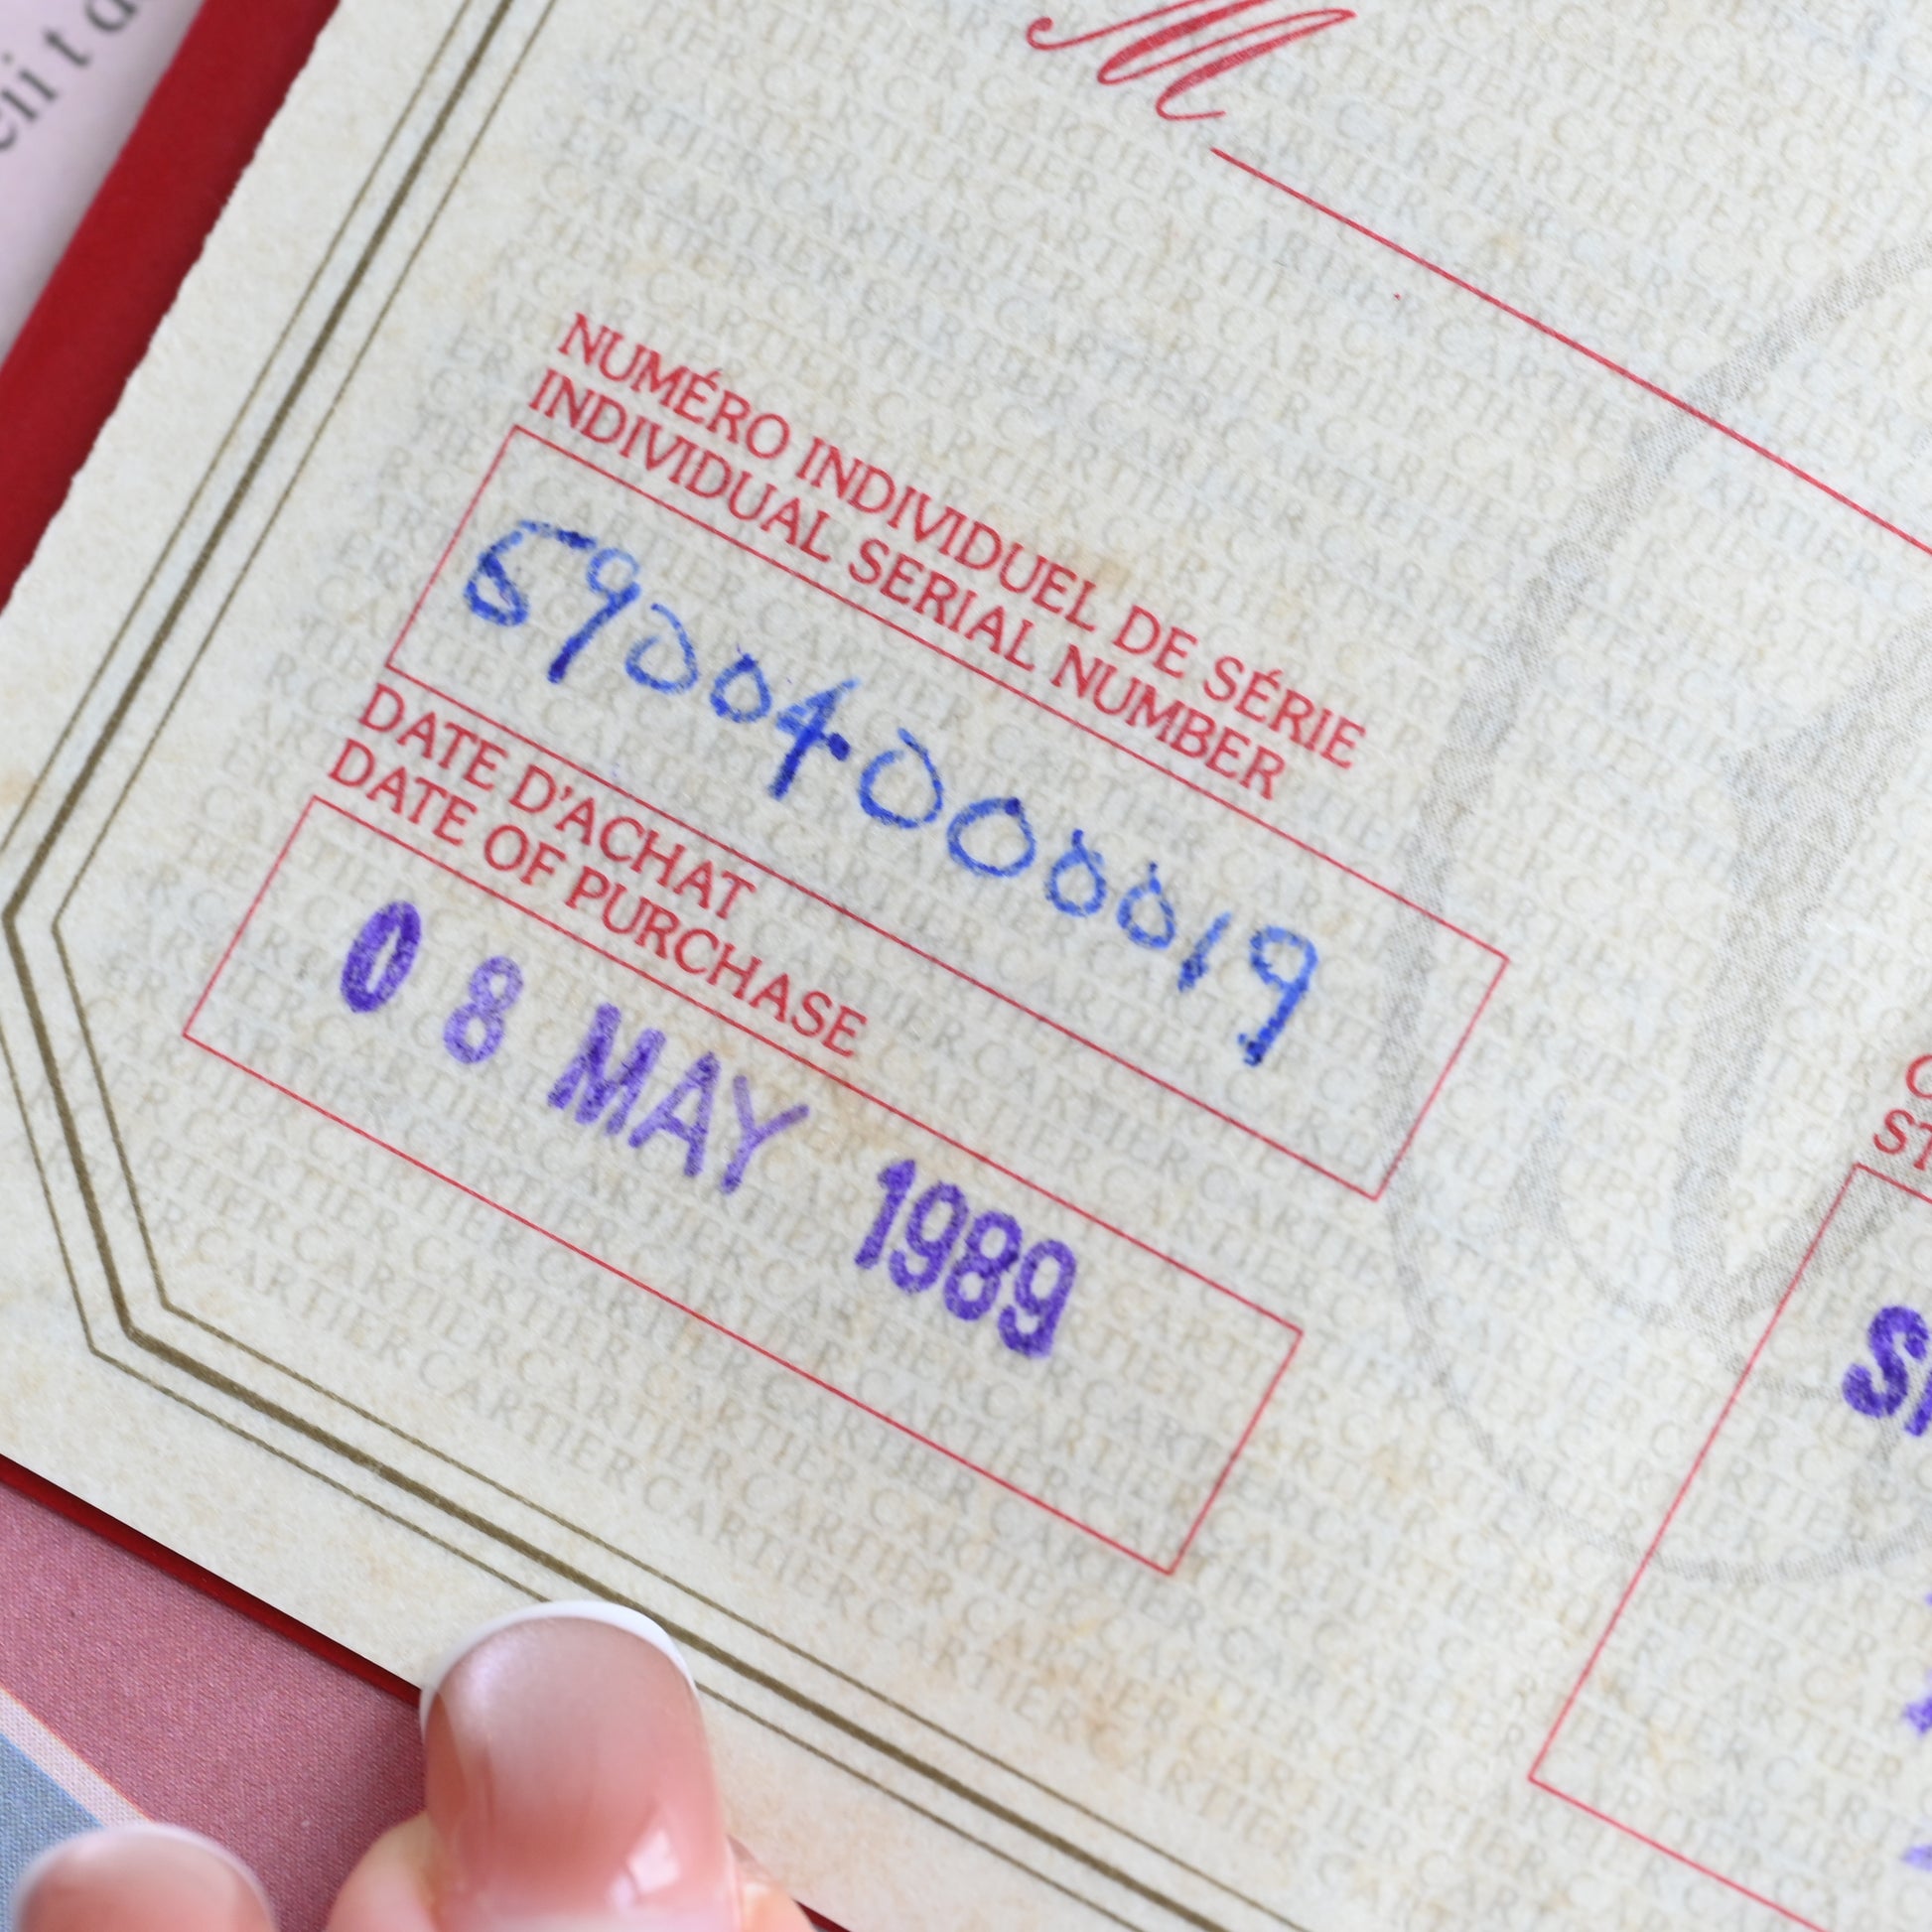 M
NUMÉRO INDIVIDUEL DE SÉRIE
INDIVIDUAL SERIAL NUMBER
59004.000019
DATE D'ACHAT
DATE OF PURCHASE
08 MAY 1989
CARTIER CARTIER CARTIER CARTIER